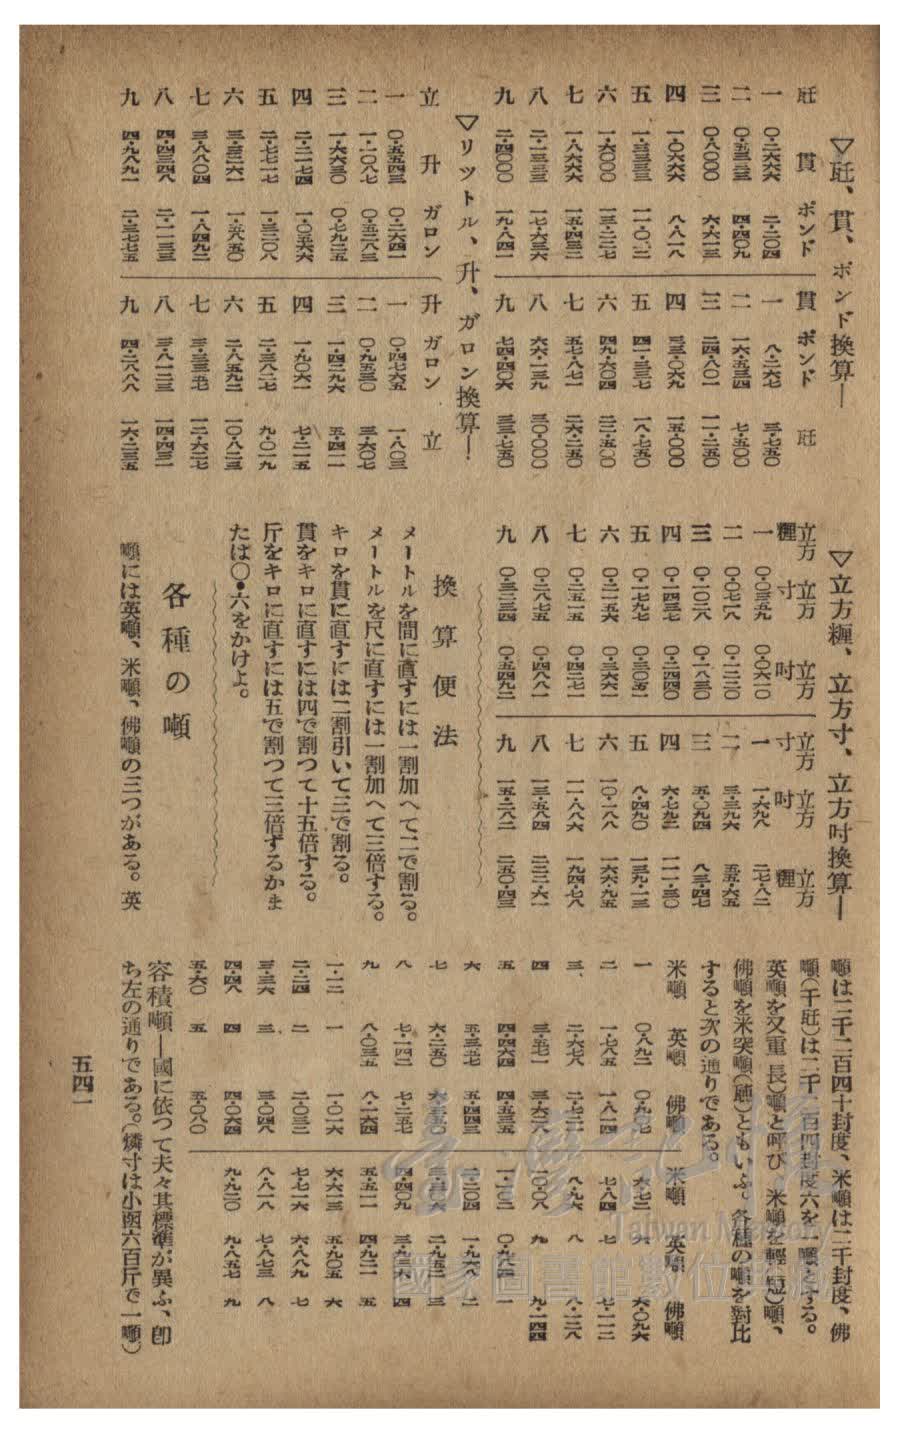 ▽瓩、貫、ポンド換算―
瓩 貫 ポンド 貫 ポンド 瓩
一 〇・二六六六 二・二〇四 一 八・二六七 三・七五〇
二 〇・五三三三 四・四〇九 二 一六・五三四 七・五〇〇
三 〇・八〇〇〇 六・六一三 三 二四・八〇一 一一・二五〇
四 一・〇六六六 八・八一八 四 三三・〇六九 一五・〇〇〇
五 一・三三三三 一一・〇二二 五 四一・三三七 一八・七五〇
六 一・六〇〇〇 一三・二二七 六 四九・六〇四 二二・五〇〇
七 一・八六六六 一五・四三二 七 五七・八七一 二六・二五〇
八 二・一三三三 一七・六三六 八 六六・一三九 三〇・〇〇〇
九 二・四〇〇〇 一九・八四一 九 七四・四〇六 三三・七五〇
▽リットル、升、ガロン換算―
立 升 ガロン 升 ガロン 立
一 〇・五五四三 〇・二六四一 一 〇・四七六五 一・八〇三
二 一・一〇八七 〇・五二八三 二 〇・九五三〇 三・六〇七
三 一・六六三〇 〇・七九二五 三 一・四二九六 五・四一一
四 二・二一七四 一・〇五六六 四 一・九〇六一 七・二一五
五 二・七七一七 一・三二〇八 五 二・三八二七 九・〇一九
六 三・三二六一 一・五八五〇 六 二・八五九二 一〇・八二三
七 三・八八〇四 一・八四九二 七 三・三三五七 一二・六二七
八 四・四三四八 二・一一三三 八 三・八一二三 一四・四三一
九 四・九八九一 二・三七七五 九 四・二八八八 一六・二三五
▽立方糎、立方寸、立方吋換算―
立方糎 立方寸 立方吋 立方寸 立方吋 立方糎
一 〇・〇三五九 〇・〇六一〇 一 一・六九八 二七・八二
二 〇・〇七一八 〇・一二二〇 二 三・三九六 五五・六五
三 〇・一〇七八 〇・一八三〇 三 五・〇九四 八三・四七
四 〇・一四三七 〇・二四四〇 四 六・七九二 一一一・三〇
五 〇・一七九七 〇・三〇五一 五 八・四九〇 一三九・一三
六 〇・二一五六 〇・三六六一 六 一〇・一八八 一六六・九五
七 〇・二五一五 〇・四二七一 七 一一・八八六 一九四・七八
八 〇・二八七五 〇・四八八一 八 一三・五八四 二二二・六一
九 〇・三二三四 〇・五四九二 九 一五・二八二 二五〇・四三
換算便法
メートルを間に直すには一割加へて二で割る。
メートルを尺に直すには一割加へて三倍する。
キロを貫に直すには二割引いて三で割る。
貫をキロに直すには四で割つて十五倍する。
斤をキロに直すには五で割つて三倍するかま
たは〇・六をかけよ。
各種の噸
噸には英噸、米噸、佛噸の三つがある。英
噸は二千二百四十封度、米噸は二千封度、佛
噸(千瓩)は二千二百四封度六を一噸とする。
英噸を又重(長)噸と呼び、米噸を輕(短)噸、
佛噸を米突噸(瓲)ともいふ。各種の噸を對比
すると次の通りである。
米噸 英噸 佛噸 米噸 英噸 佛噸
一 〇・八九二 〇・九〇七 六・七二 六 六・〇九六
二 一・七八五 一・八一四 七・八四 七 七・一一二
三 二・六七八 二・七二一 八・九六 八 八・一二八
四 三・五七一 三・六二八 一〇・〇八 九 九・一四四
五 四・四六四 四・五三五 一・一〇二 〇・九八四 一
六 五・三五七 五・四四三 二・二〇四 一・九六八 二
七 六・二五〇 六・三五〇 三・三〇六 二・九五二 三
八 七・一四二 七・二五七 四・四〇九 三・九三六 四
九 八・〇三五 八・一六四 五・五一一 四・九二一 五
一・一二 一 一・〇一六 六・六一三 五・九〇五 六
二・二四 二 二・〇三二 七・七一六 六・八八九 七
三・三六 三 三・〇四八 八・八一八 七・八七三 八
四・四八 四 四・〇六四 九・九二〇 九・八五七 九
五・六〇 五 五・〇八〇
容積噸―國に依つて夫々其標準が異ふ、卽
ち左の通りである。(燐寸は小函六百斤で一噸)
五四一
臺灣記憶
Taiwan Memory
國家圖書館數位典藏